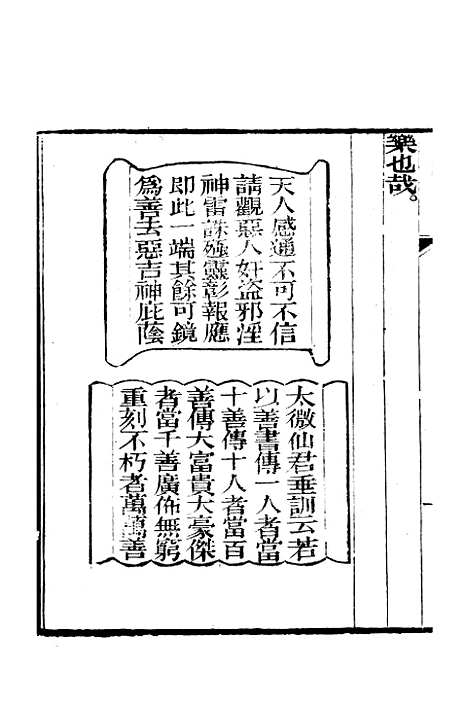 樂也哉。
天人感通不可不信
請觀惡人奸盜邪淫
神雷誅殛靈彰報應
即此一端其餘可鏡
爲善去惡吉神庇蔭
太微仙君垂訓云若
以善書傳一人者當
十善傳十人者當百
善傳大富貴大豪傑
者當千善廣佈無窮
重刻不朽者萬萬善